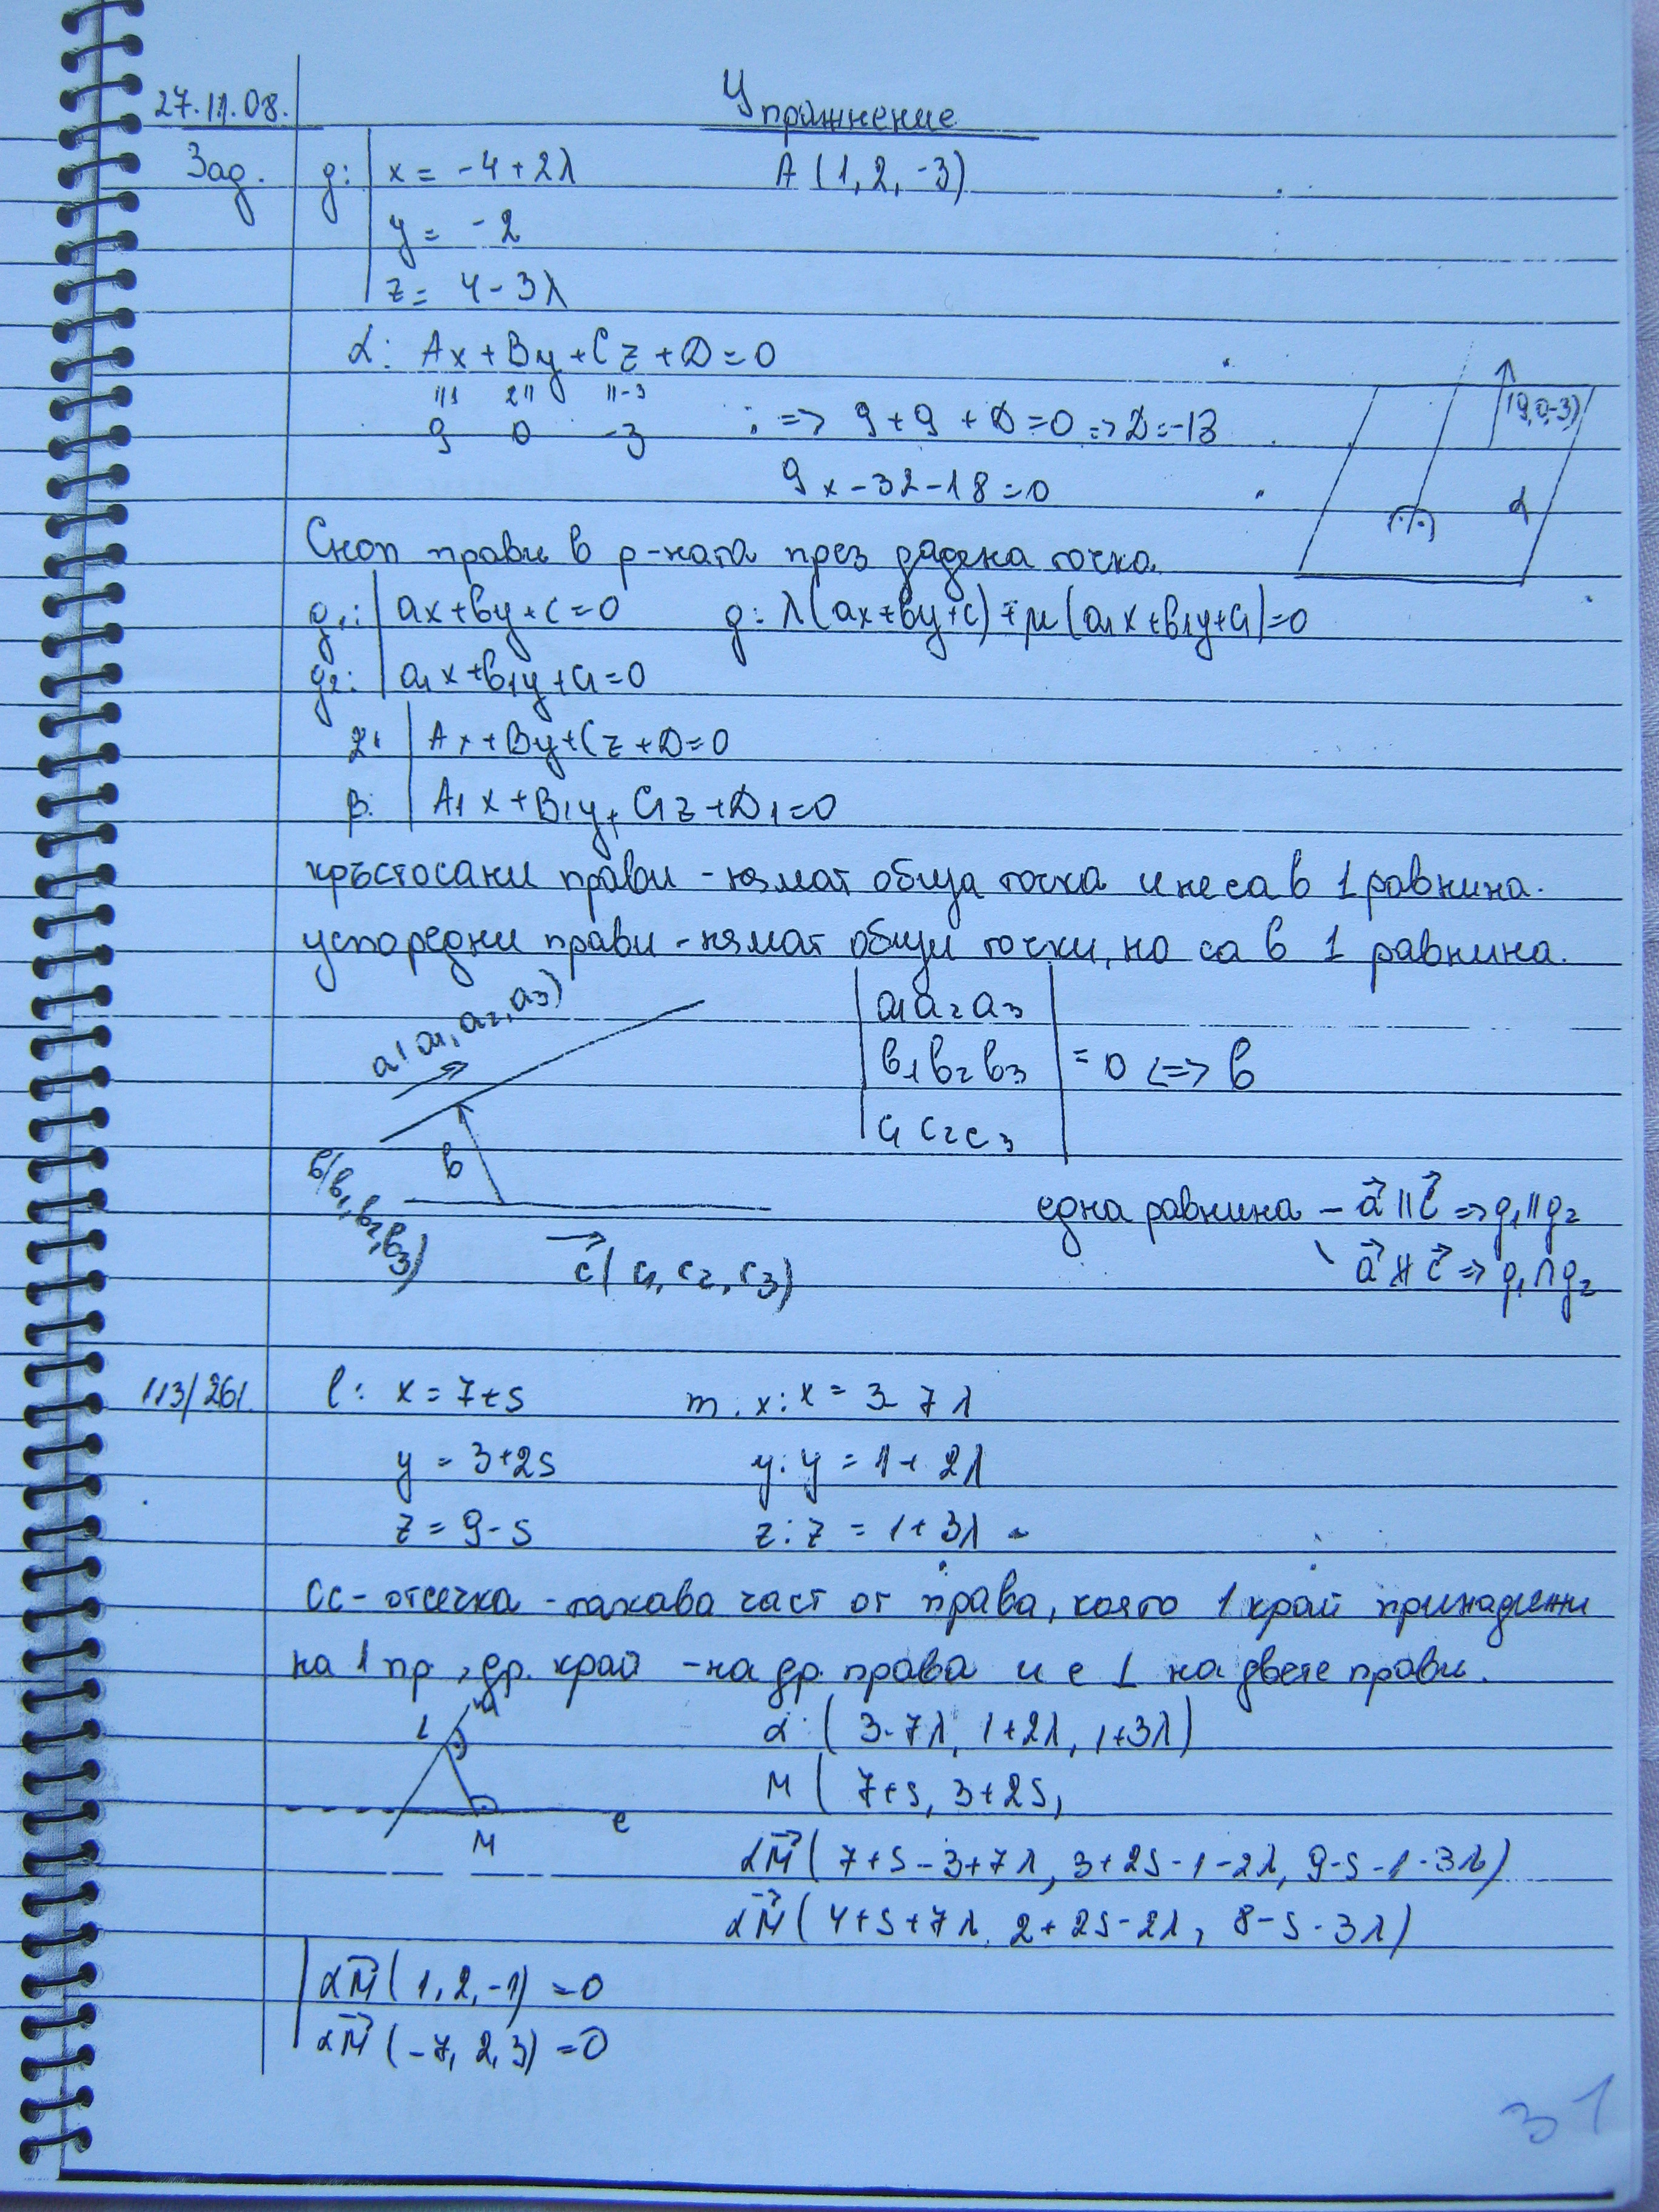 27.11.08. Упражнение
Зад. g: x = -4+2λ A (1, 2, -3)
y = -2
z = 4-3λ
α: Ax+By+Cz+D=0
9 0 -3 ; => 9+9+D=0 => D=-13
9x-3z-18=0
(9,0,-3)
α
Сноп прави в р-ната през дадена точка.
g1: ax+by+c=0 g: λ(ax+by+c)+μ(a1x+b1y+c1)=0
g2: a1x+b1y+c1=0
α: Ax+By+Cz+D=0
β: A1x+B1y+C1z+D1=0
кръстосани прави - нямат обща точка и не са в 1 равнина.
успоредни прави - нямат общи точки, но са в 1 равнина.
a(a1, a2, a3)
a1 a2 a3
b1 b2 b3 = 0 <=> b
c1 c2 c3
b
b(b1, b2, b3)
c(c1, c2, c3)
една равнина - a||c => g1||g2
a∦c => g1∩g2
113/261. l: x = 7+s m: x: x = 3-7λ
y = 3+2s y: y = 1+2λ
z = 9-s z: z = 1+3λ
Ос-отсечка - такава част от права, която 1 край принадлежи
на 1 пр., др. край - на др. права и е ⊥ на двете прави.
L m
M l
L (3-7λ, 1+2λ, 1+3λ)
M (7+s, 3+2s,
LM (7+s-3+7λ, 3+2s-1-2λ, 9-s-1-3λ)
LM (4+s+7λ, 2+2s-2λ, 8-s-3λ)
LM (1, 2, -1) = 0
LM (-7, 2, 3) = 0
31